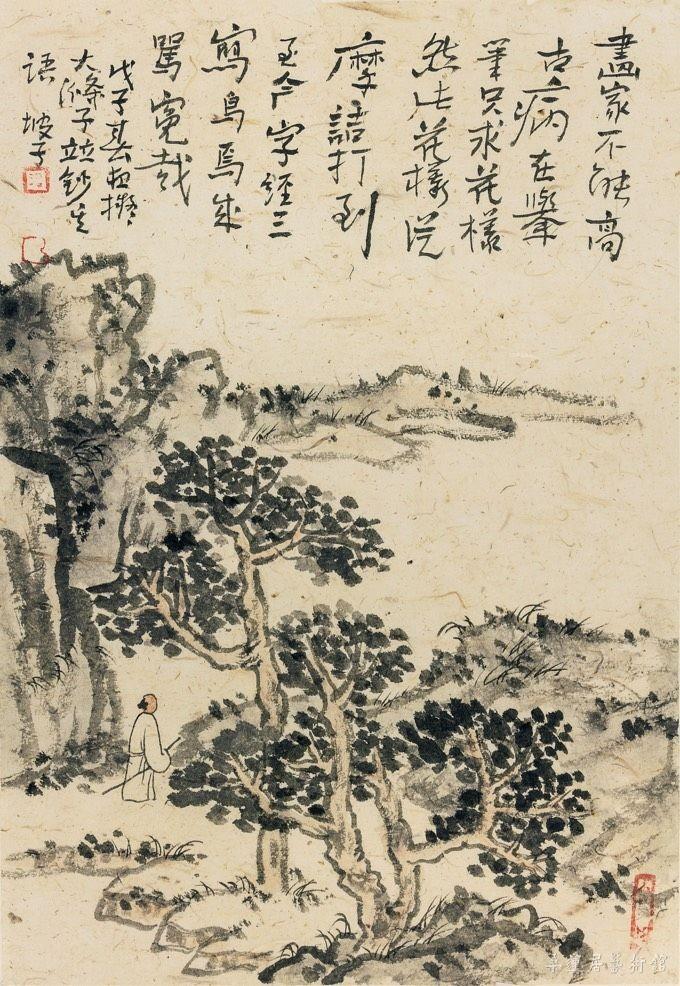 畫家不能高
古病在舉
筆只求花樣
然此花樣從
摩詰打到
至今字經三
寫烏焉成
馬冤哉
戊子春擬
大滌子並鈔其
語 坡子
居藝術館